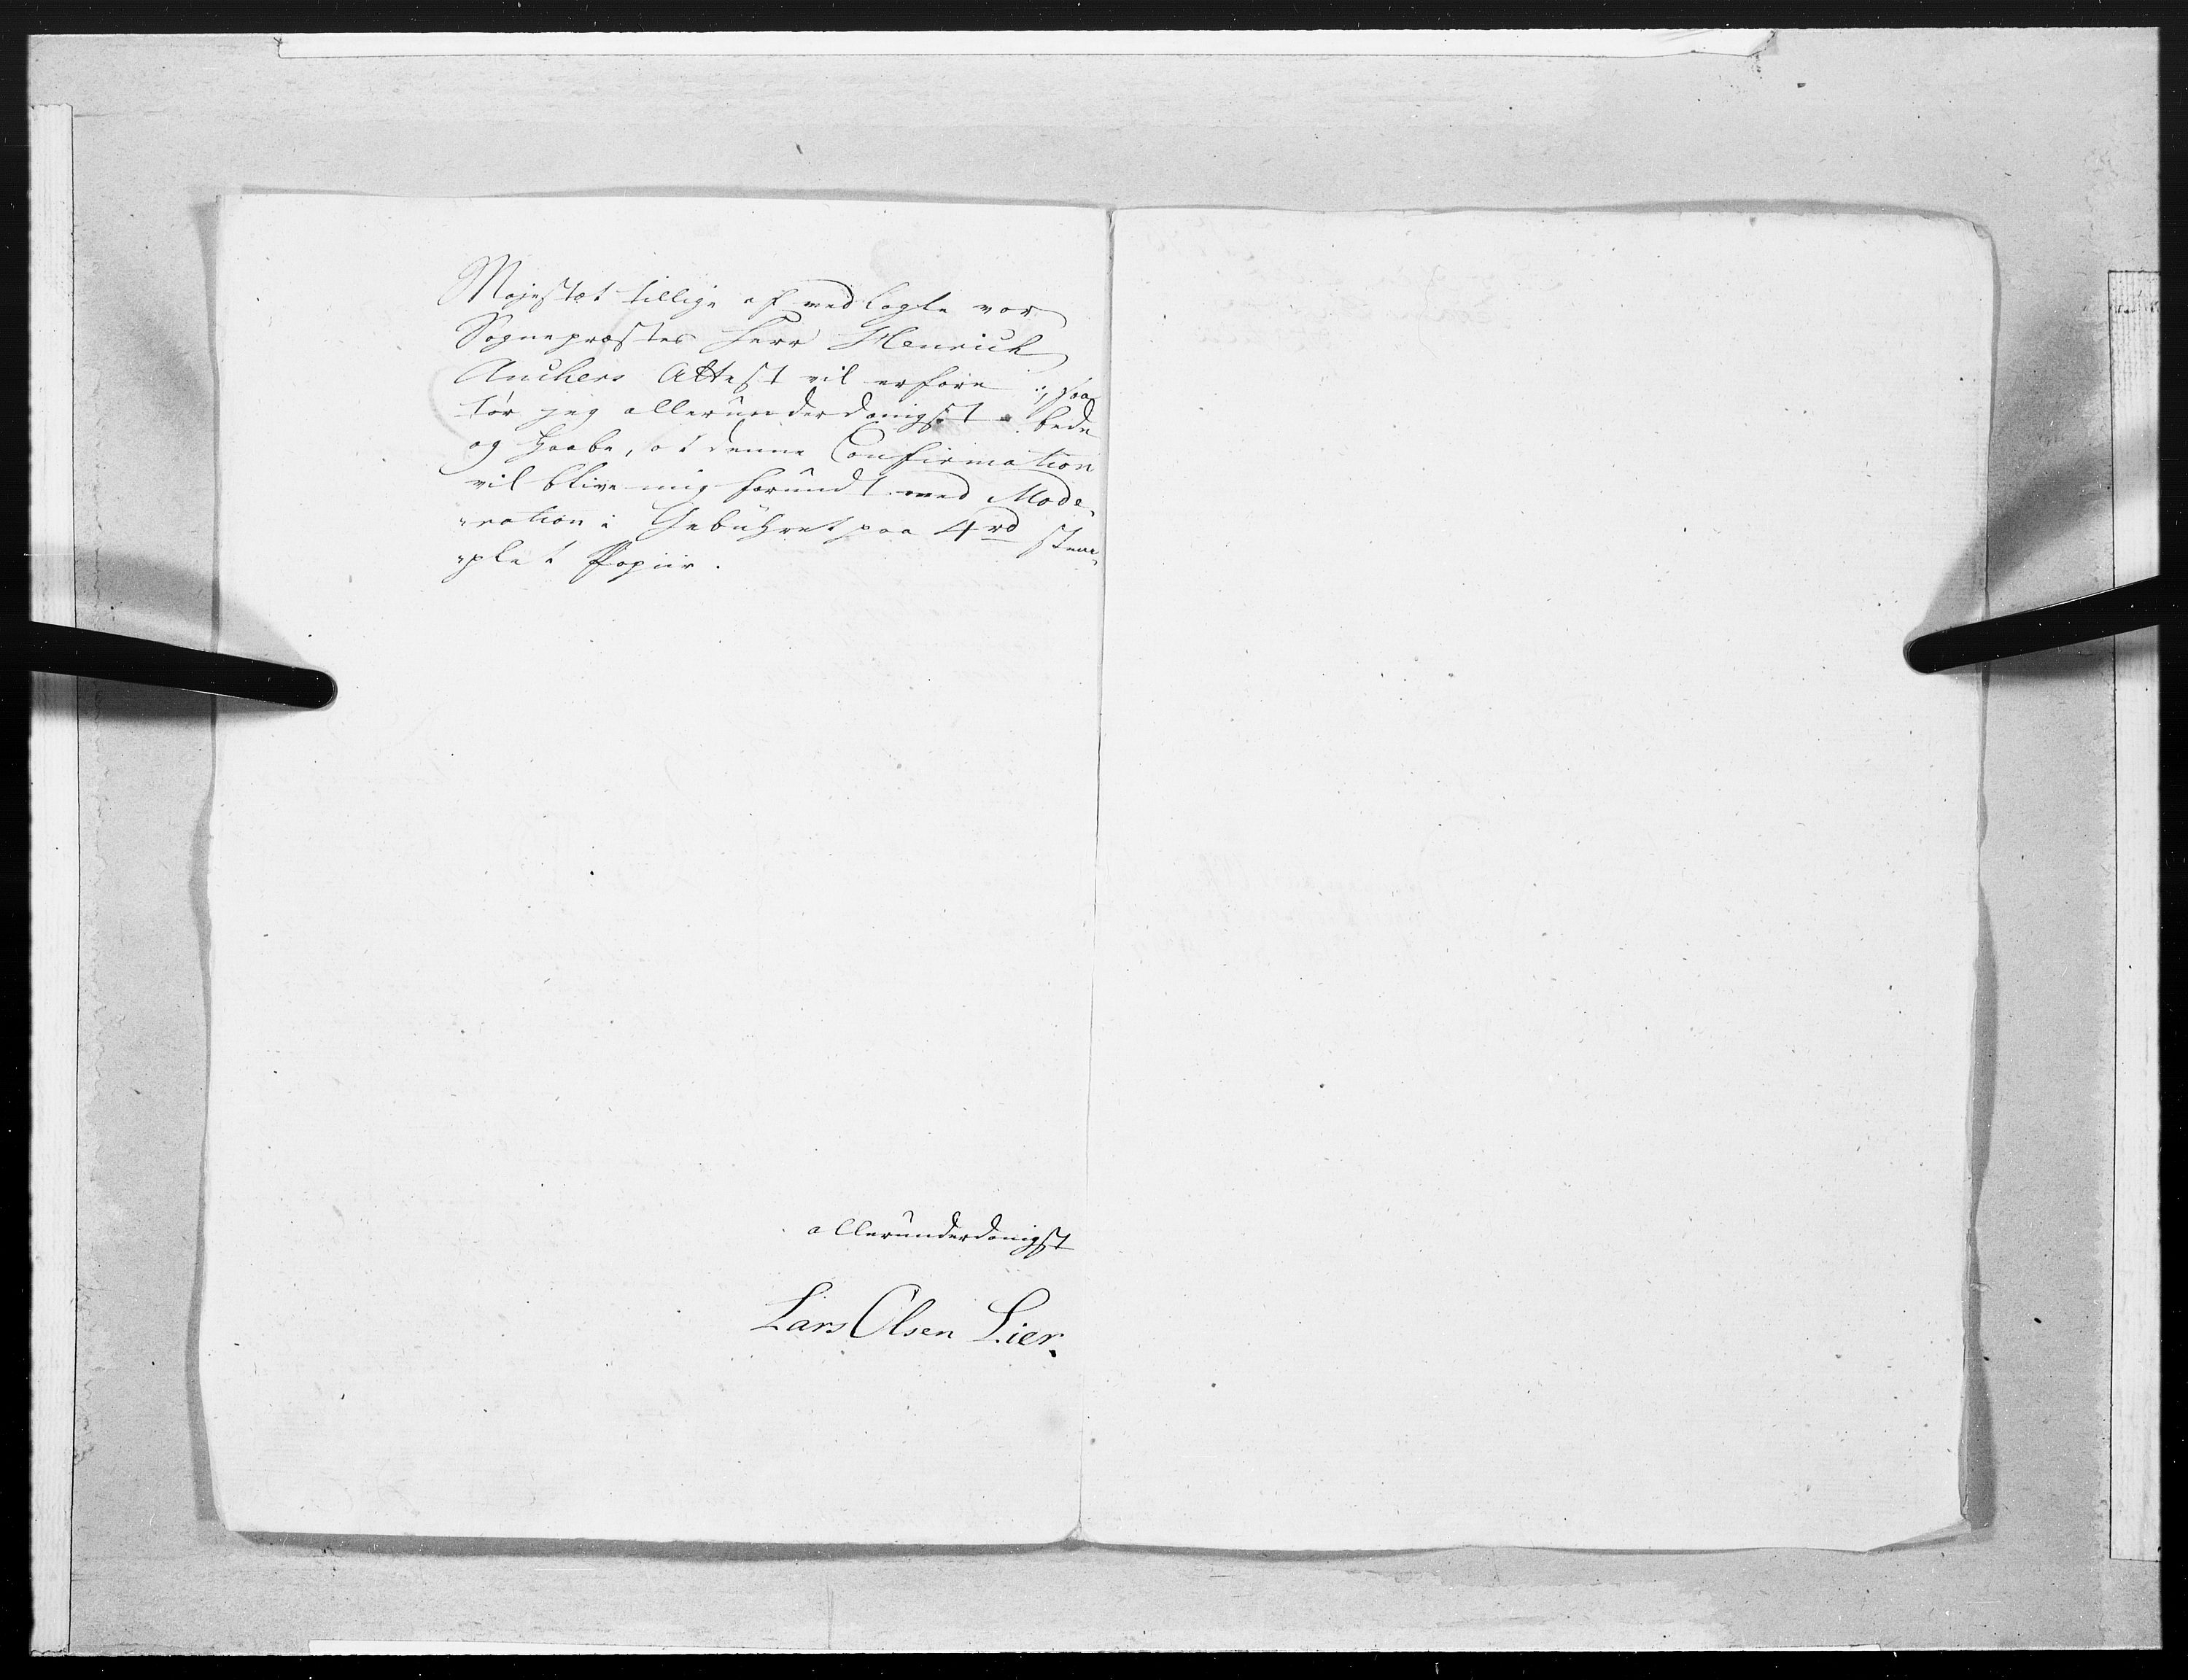 Majestæt tillige af vedlagte vor
Sognepræstes Herr Henrich
Anchers Attest vil erfare :/ saa
tør jeg allerunderdanigst bede
og haabe, at denne Confirmation
vil blive mig forundt med Mode„
„ration i Gebuhret paa 4rd Stem„
„plet Papiir.
allerunderdanigst
Lars Olsen Lier.